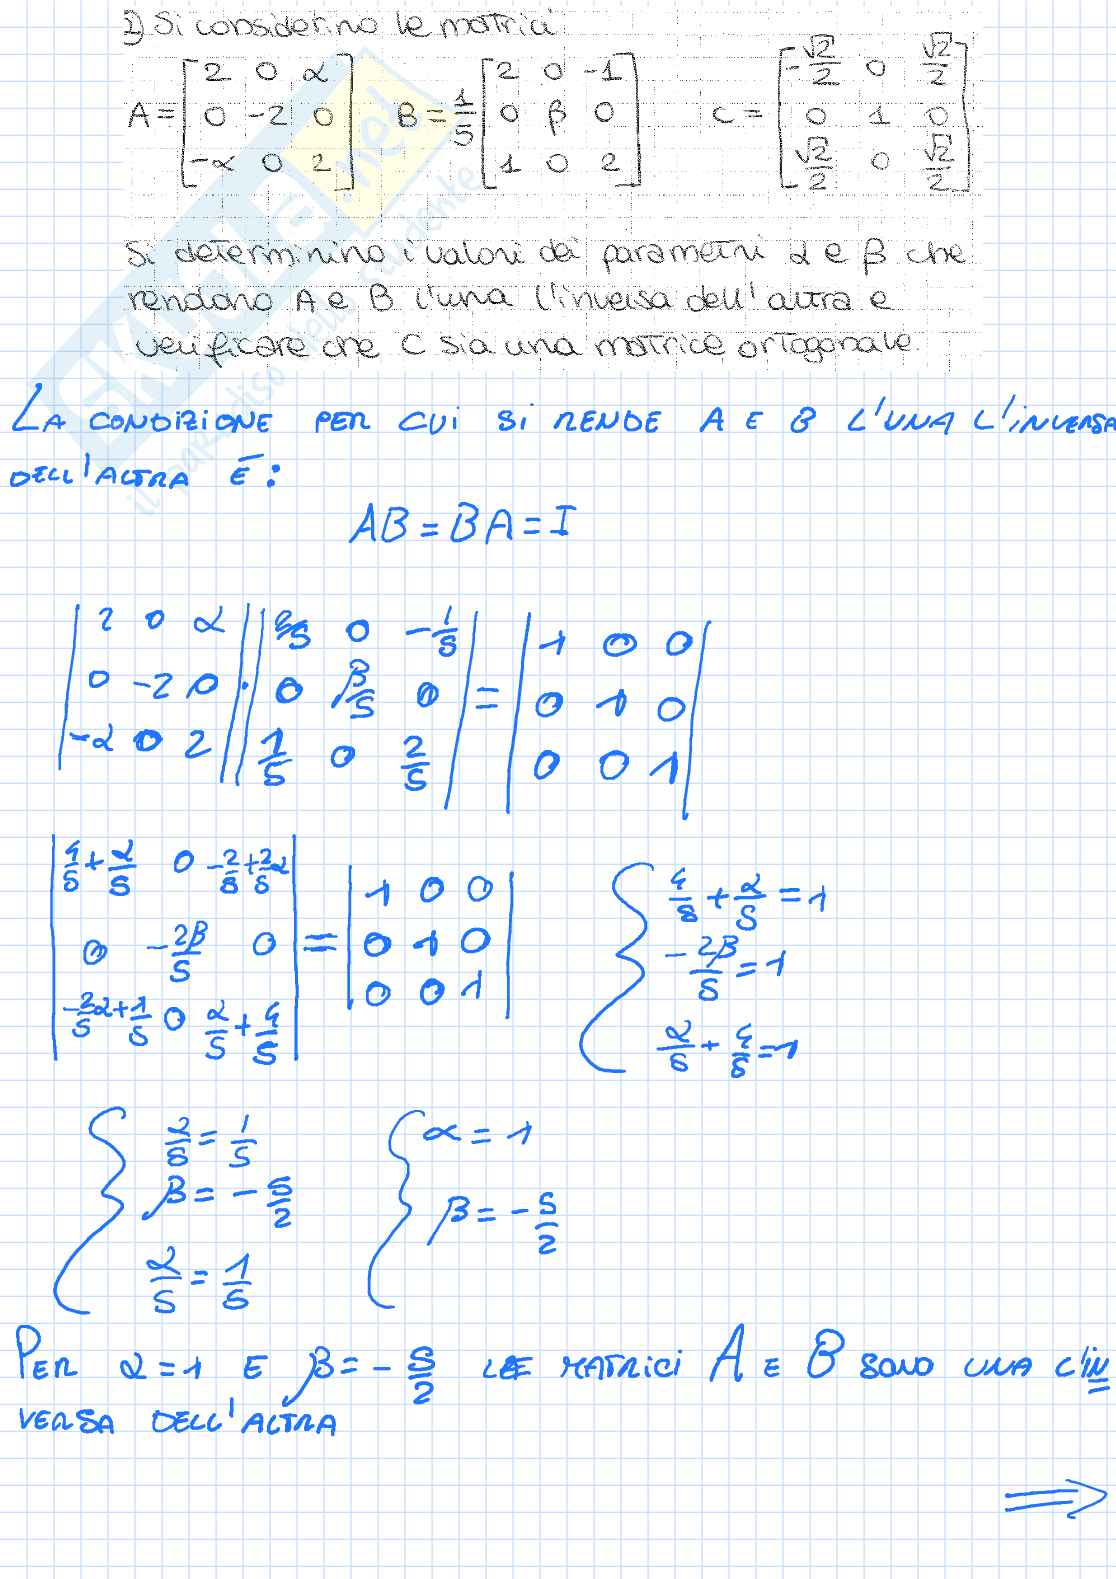 1) Si considerino le matrici
A = [2 0 α; 0 -2 0; -α 0 2] B = 1/5 [2 0 -1; 0 β 0; 1 0 2] C = [-√2/2 0 √2/2; 0 1 0; √2/2 0 √2/2]
Si determinino i valori dei parametri α e β che
rendono A e B l'una l'inversa dell'altra e
verificare che C sia una matrice ortogonale.
LA CONDIZIONE PER CUI SI RENDE A E B L'UNA L'INVERSA
DELL'ALTRA È:
AB = BA = I
|2 0 α; 0 -2 0; -α 0 2| · |2/5 0 -1/5; 0 β/5 0; 1/5 0 2/5| = |1 0 0; 0 1 0; 0 0 1|
|4/5 + α/5 0 -2/5 + 2/5 α; 0 -2β/5 0; -2/5 α + 1/5 0 α/5 + 4/5| = |1 0 0; 0 1 0; 0 0 1| { 4/5 + α/5 = 1; -2β/5 = 1; α/5 + 4/5 = 1
{ α/5 = 1/5; β = -5/2; α/5 = 1/5 { α = 1; β = -5/2
PER α = 1 E β = -5/2 LE MATRICI A E B SONO UNA L'IN
VERSA DELL'ALTRA
⇒
SKUOLA.net
il paradiso dello studente